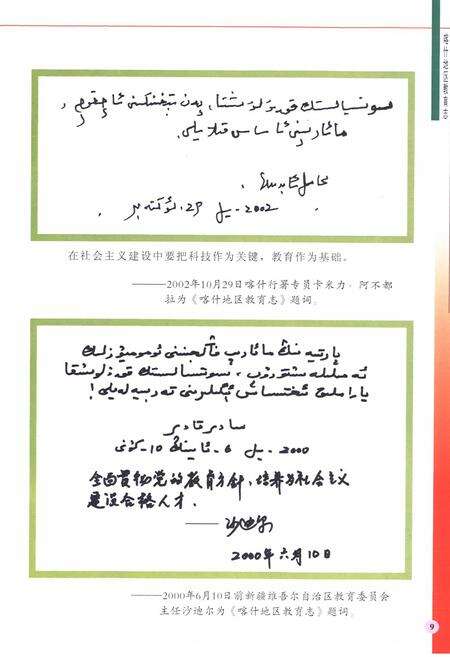 سوتسىيالىستىك قۇرۇلۇشتا، پەن تېخنىكىنى ئاچقۇچ،
مائارىپنى ئاساس قىلايلى.
2002 - يىل 29. ئۆكتەبىر
在社会主义建设中要把科技作为关键，教育作为基础。
——2002年10月29日喀什行署专员卡米力·阿不都
拉为《喀什地区教育志》题词。
پارتىيەنىڭ مائارىپ فاڭجېنىنى ئومۇميۈزلۈك
ئەمىلىلەشتۈرۈپ، سوتسىيالىستىك قۇرۇلۇشقا
ياراملىق ئىختىساس ئىگىلىرىنى تەربىيەلەيلى!
سادىر قادىر
2000 - يىل 6 - ئاينىڭ 10 - كۈنى
全面贯彻党的教育方针，培养为社会主义
建设合格人才．
——沙迪尔
2000年六月10日
——2000年6月10日前新疆维吾尔自治区教育委员会
主任沙迪尔为《喀什地区教育志》题词。
9